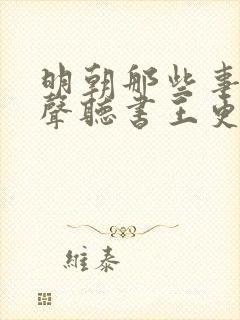 明朝那些事
聲聽書王更
維泰